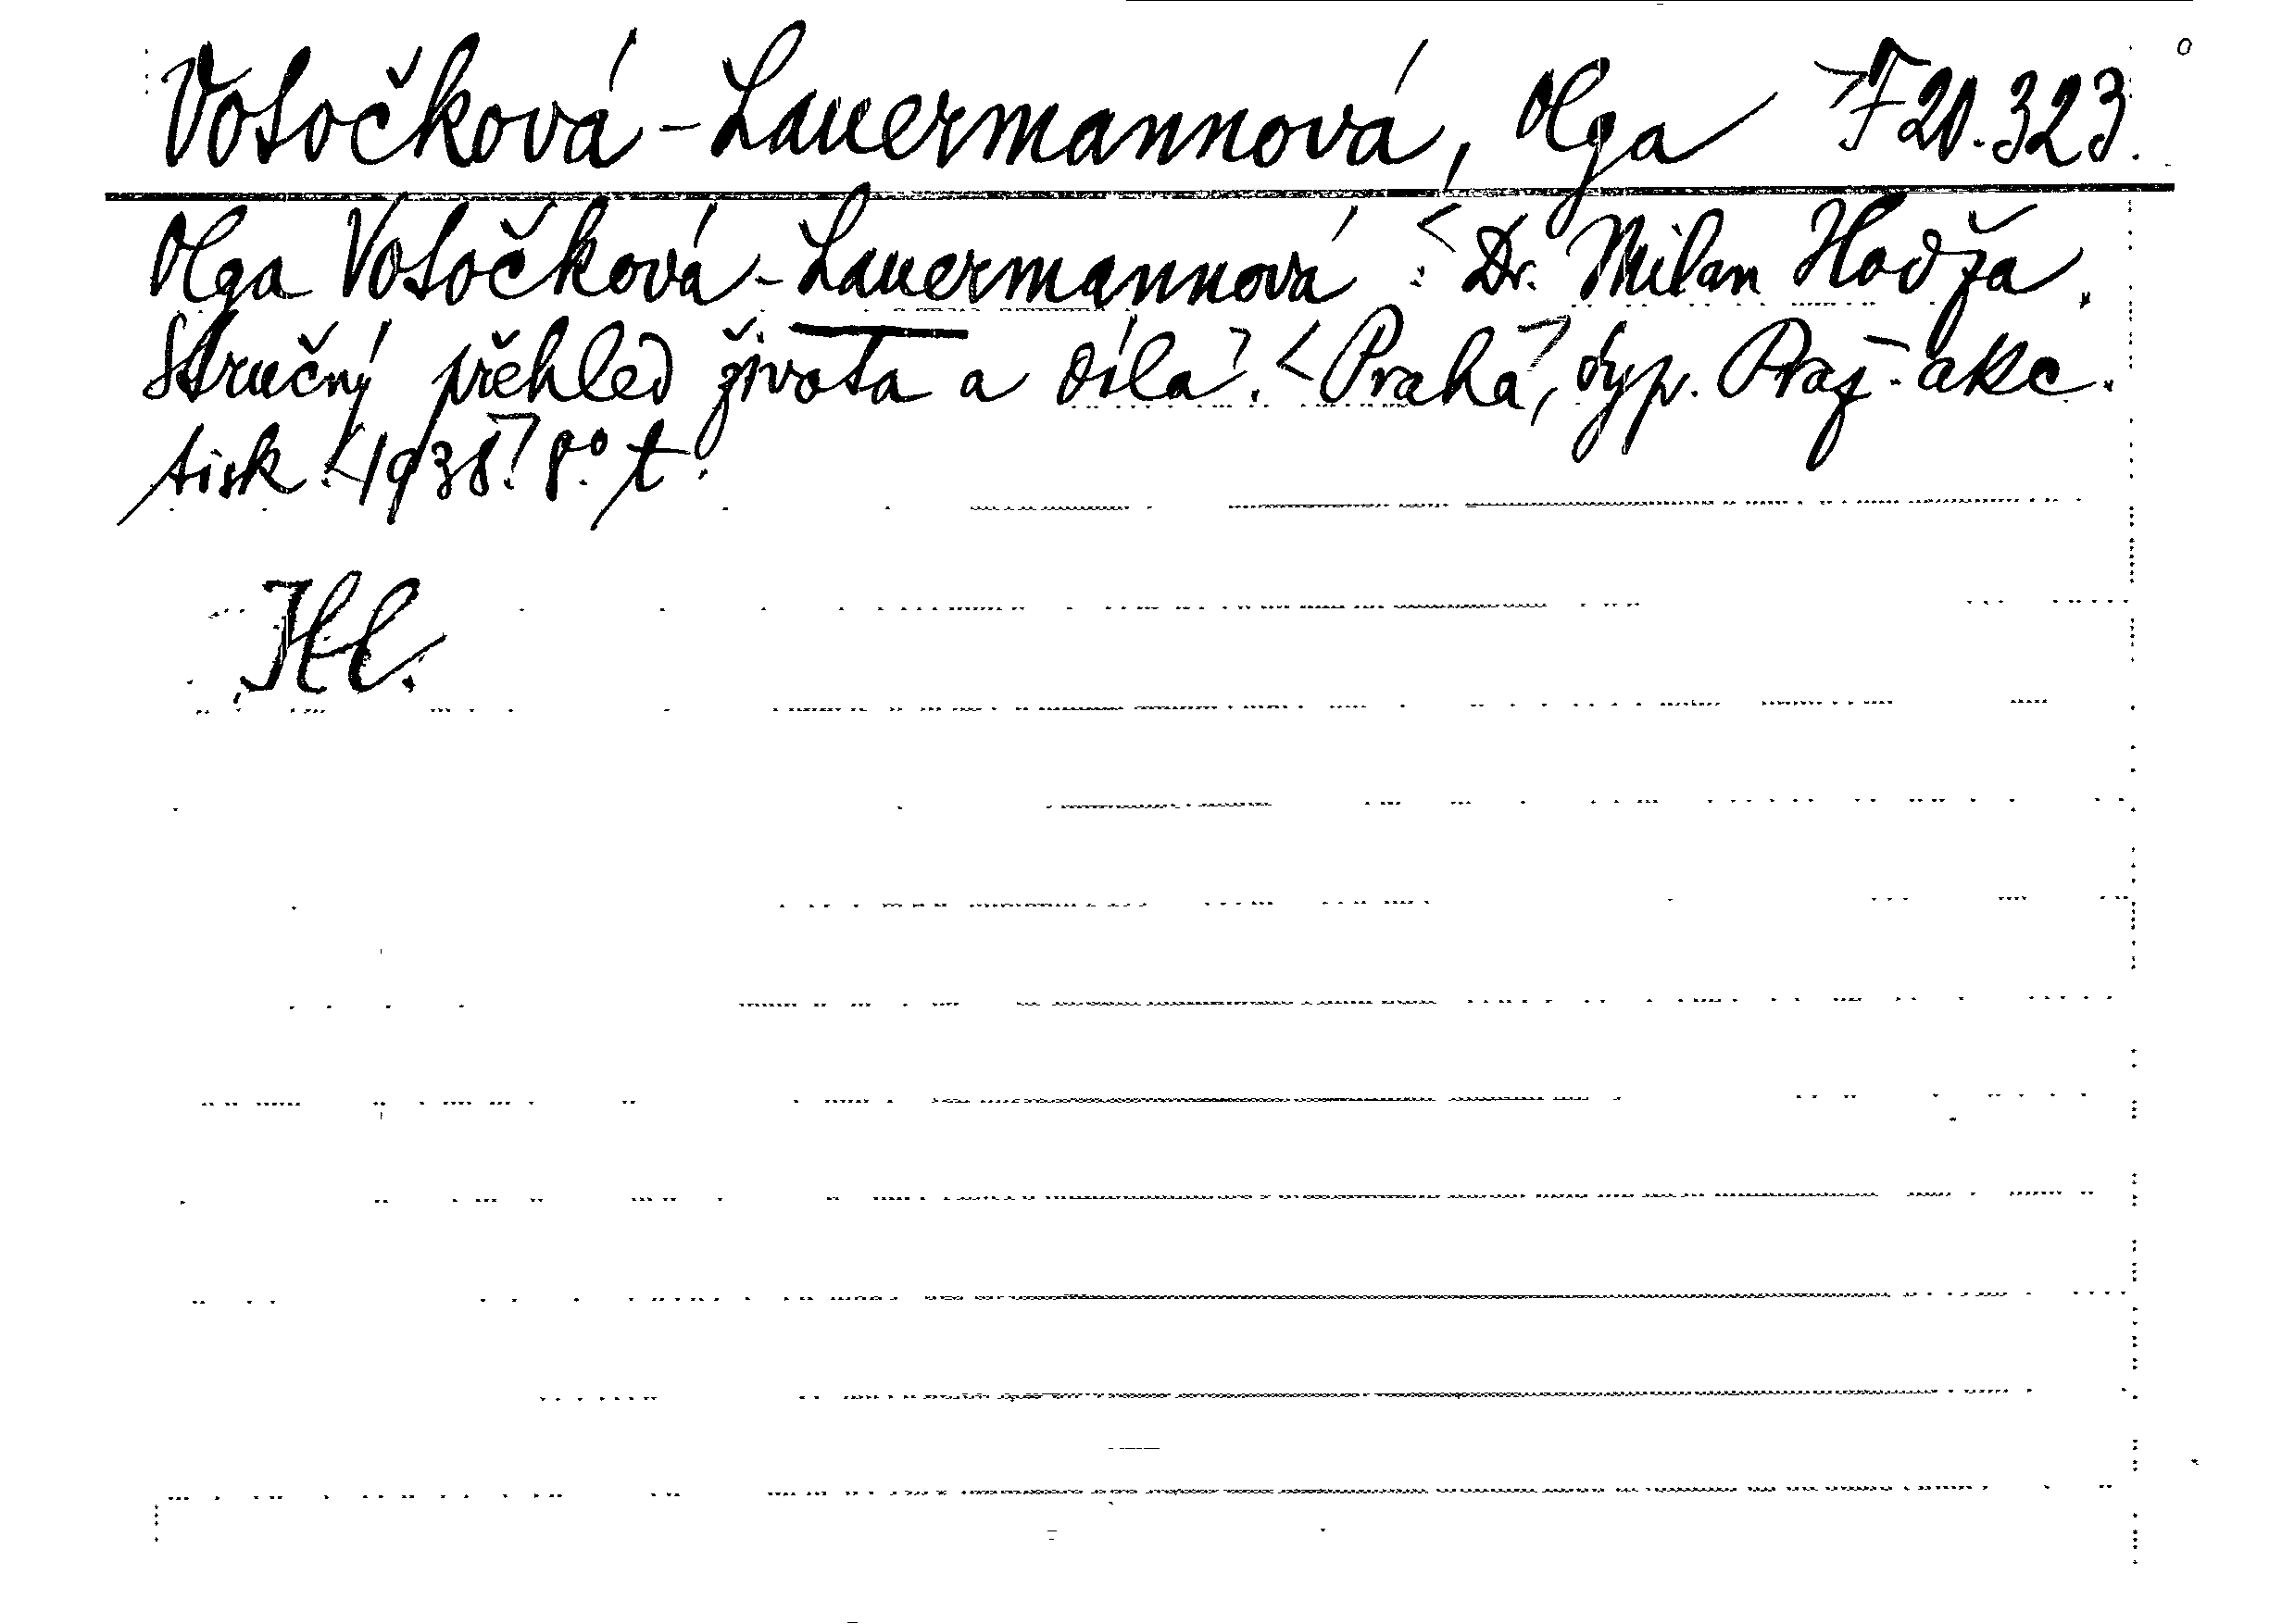 Votočková-Lauermannová, Olga F 20.323.
Olga Votočková-Lauermannová: <Dr. Milan Hodža.
Stručný přehled života a díla>. <Praha>, typ. Praž. akc.
tisk. <1938>. 8.° t.